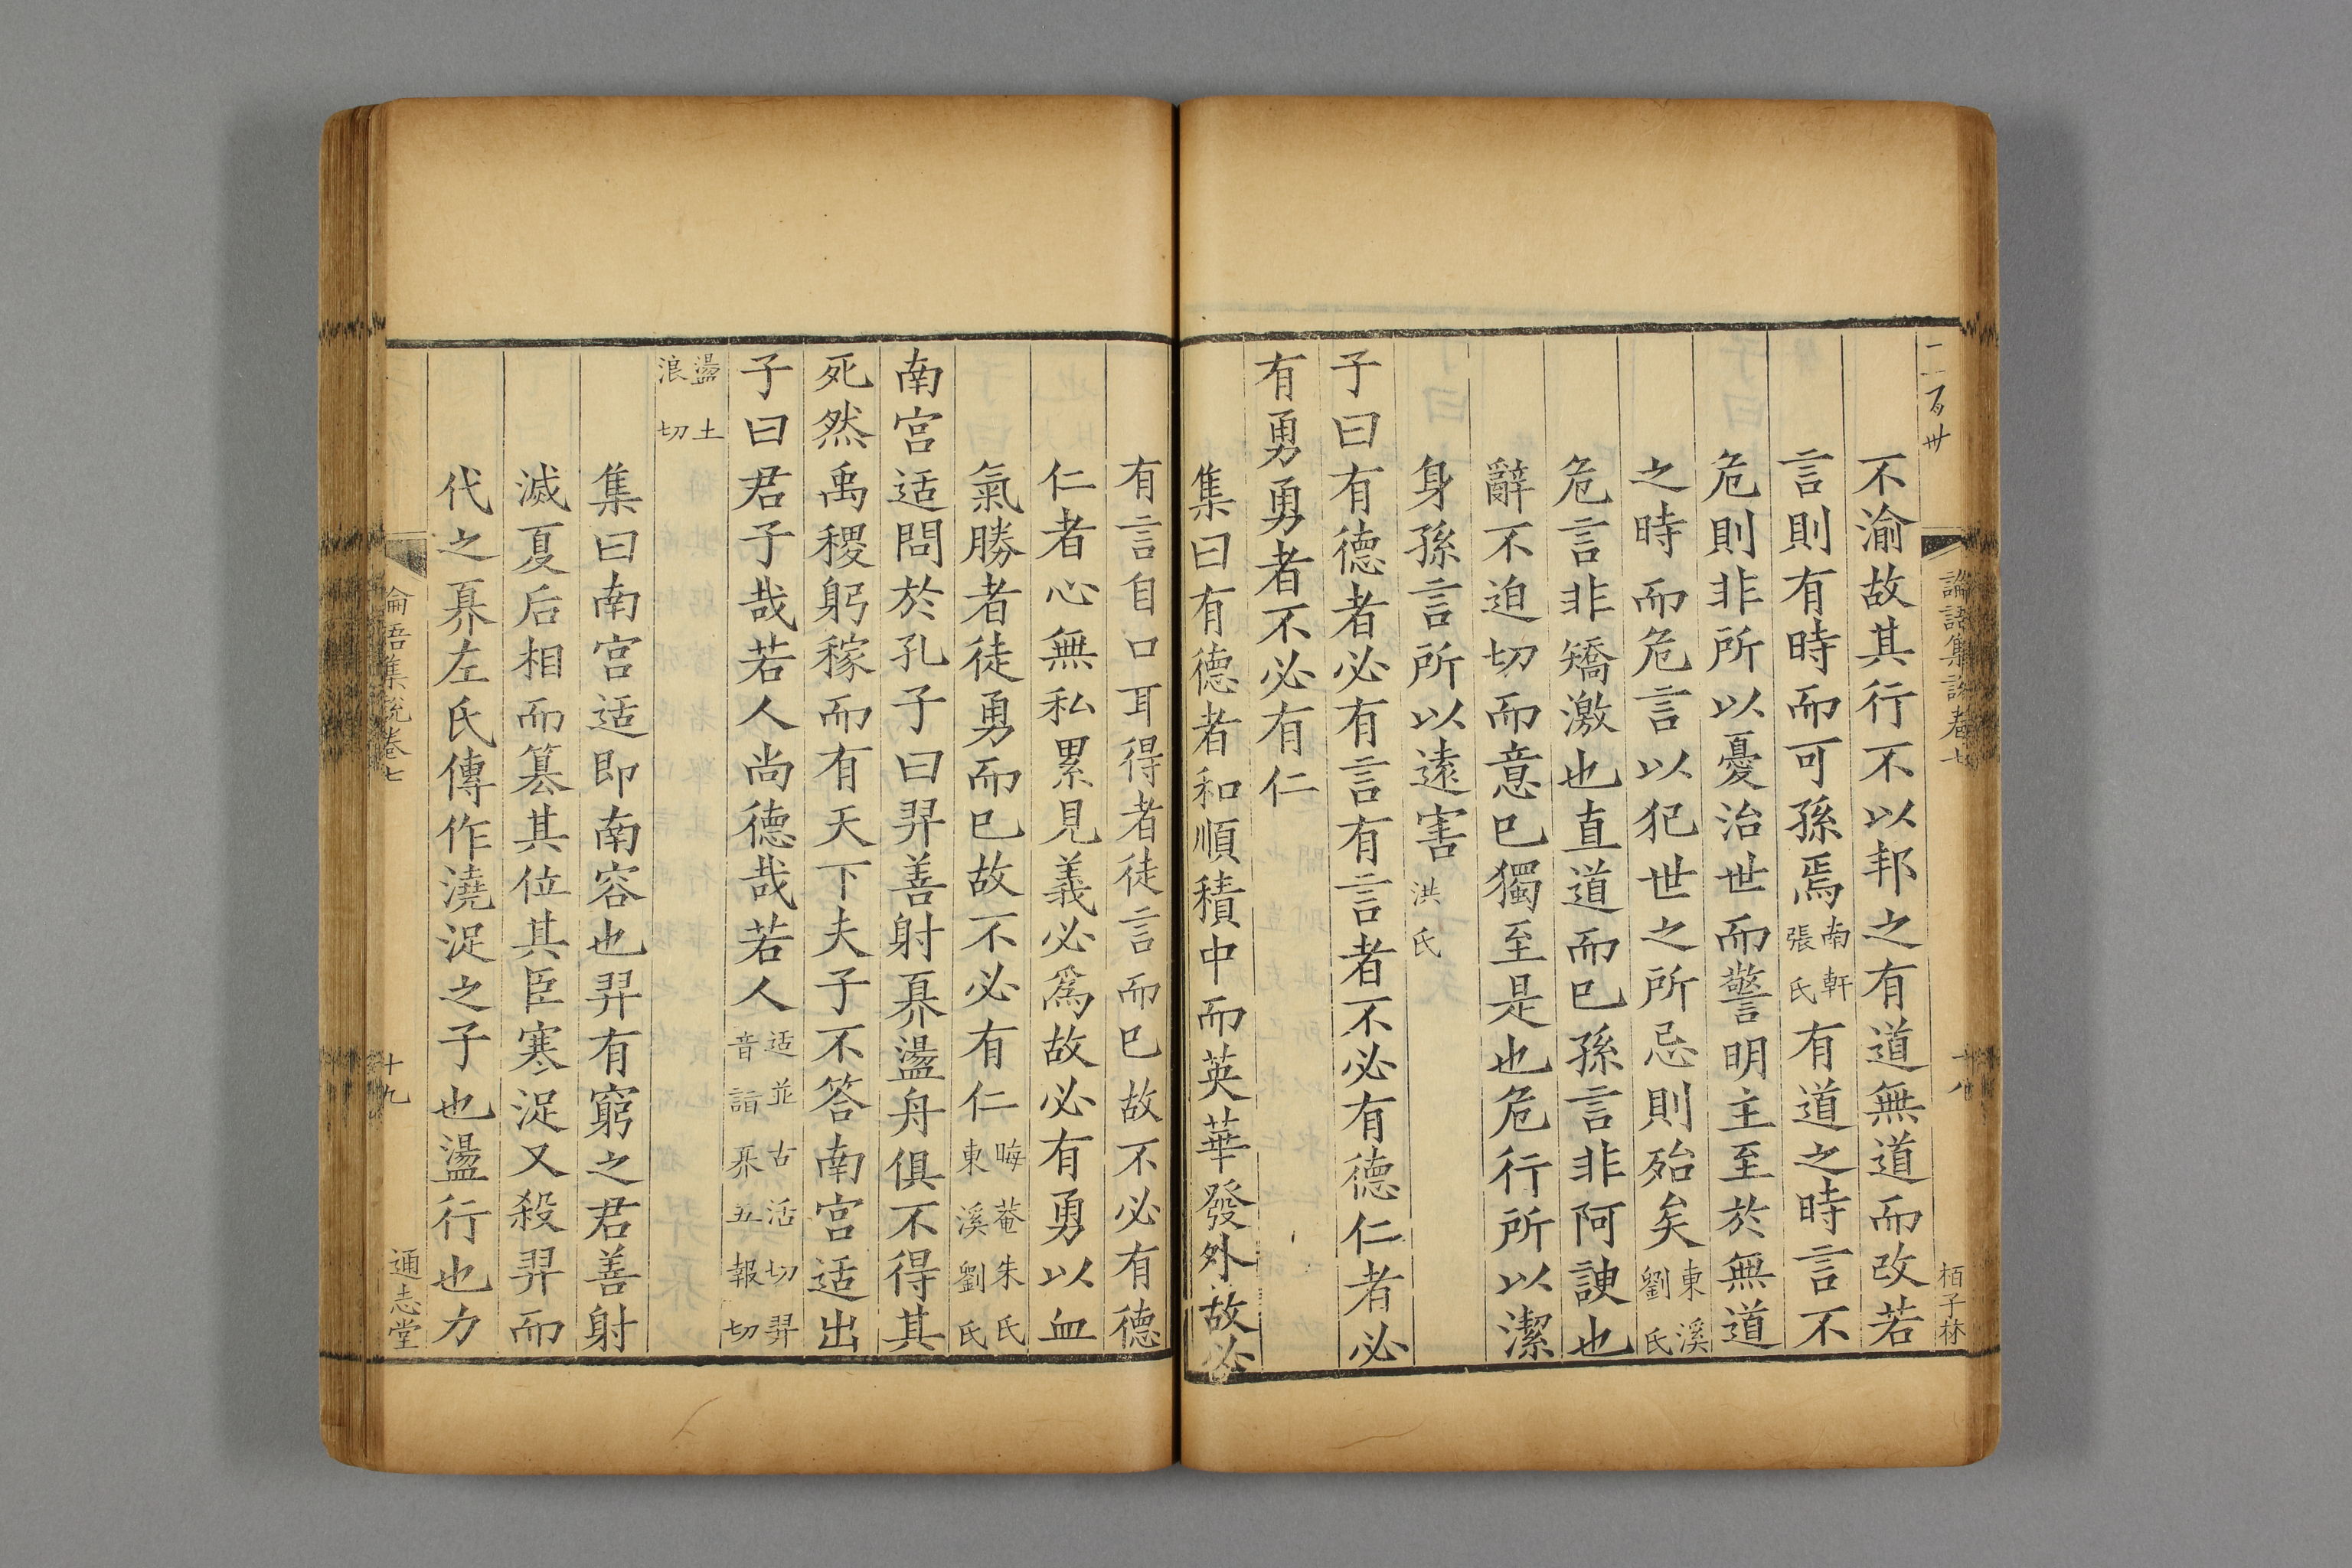 二百卅
論語集說卷七
十八
栢子林
不渝故其行不以邦之有道無道而改若
言則有時而可孫焉南軒張氏有道之時言不
危則非所以憂治世而警明主至於無道
之時而危言以犯世之所忌則殆矣東溪劉氏
危言非矯激也直道而巳孫言非阿諛也
辭不迫切而意巳獨至是也危行所以潔
身孫言所以遠害洪氏
子曰有德者必有言有言者不必有德仁者必
有勇勇者不必有仁
集曰有德者和順積中而英華發外故必
有言自口耳得者徒言而巳故不必有德
仁者心無私累見義必爲故必有勇以血
氣勝者徒勇而巳故不必有仁晦菴朱氏東溪劉氏
南宮适問於孔子曰羿善射奡盪舟俱不得其
死然禹稷躬稼而有天下夫子不答南宮适出
子曰君子哉若人尚德哉若人适並古活切羿音詣奡五報切
盪土浪切
集曰南宮适即南容也羿有窮之君善射
滅夏后相而篡其位其臣寒浞又殺羿而
代之奡左氏傳作澆浞之子也盪行也力
論語集說卷七
十九
通志堂